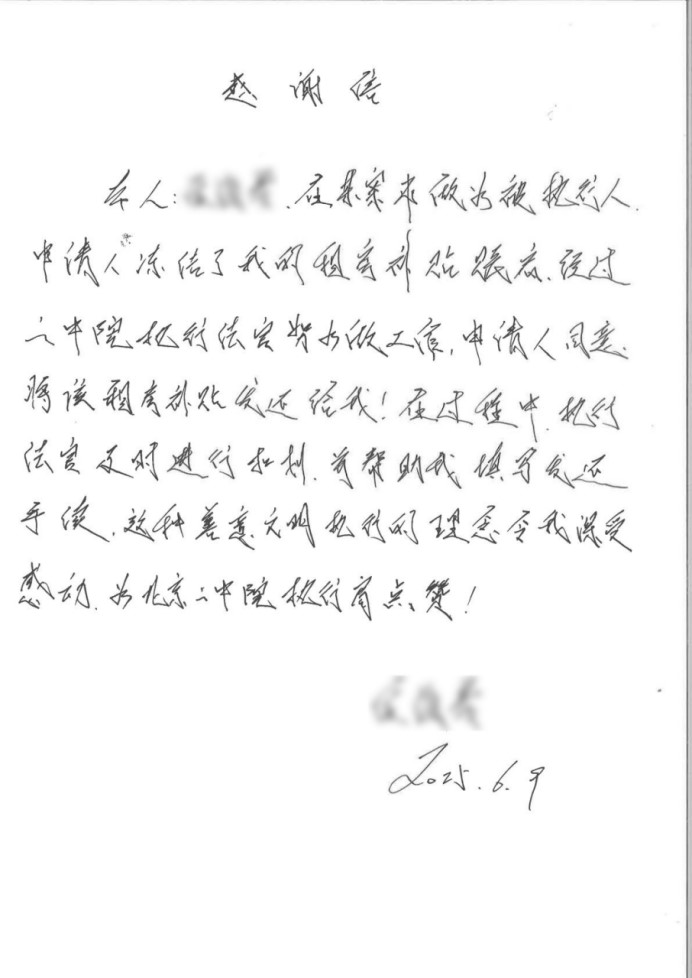 感谢信
本人: 在某案中做为被执行人,
申请人冻结了我的租房补贴账户,经过
二中院执行法官努力做工作,申请人同意
将该租房补贴发还给我!在过程中,执行
法官及时进行扣划,并帮助我填写发还
手续,这种善意文明执行的理念令我深受
感动,为北京二中院执行局点赞!
2025.6.9